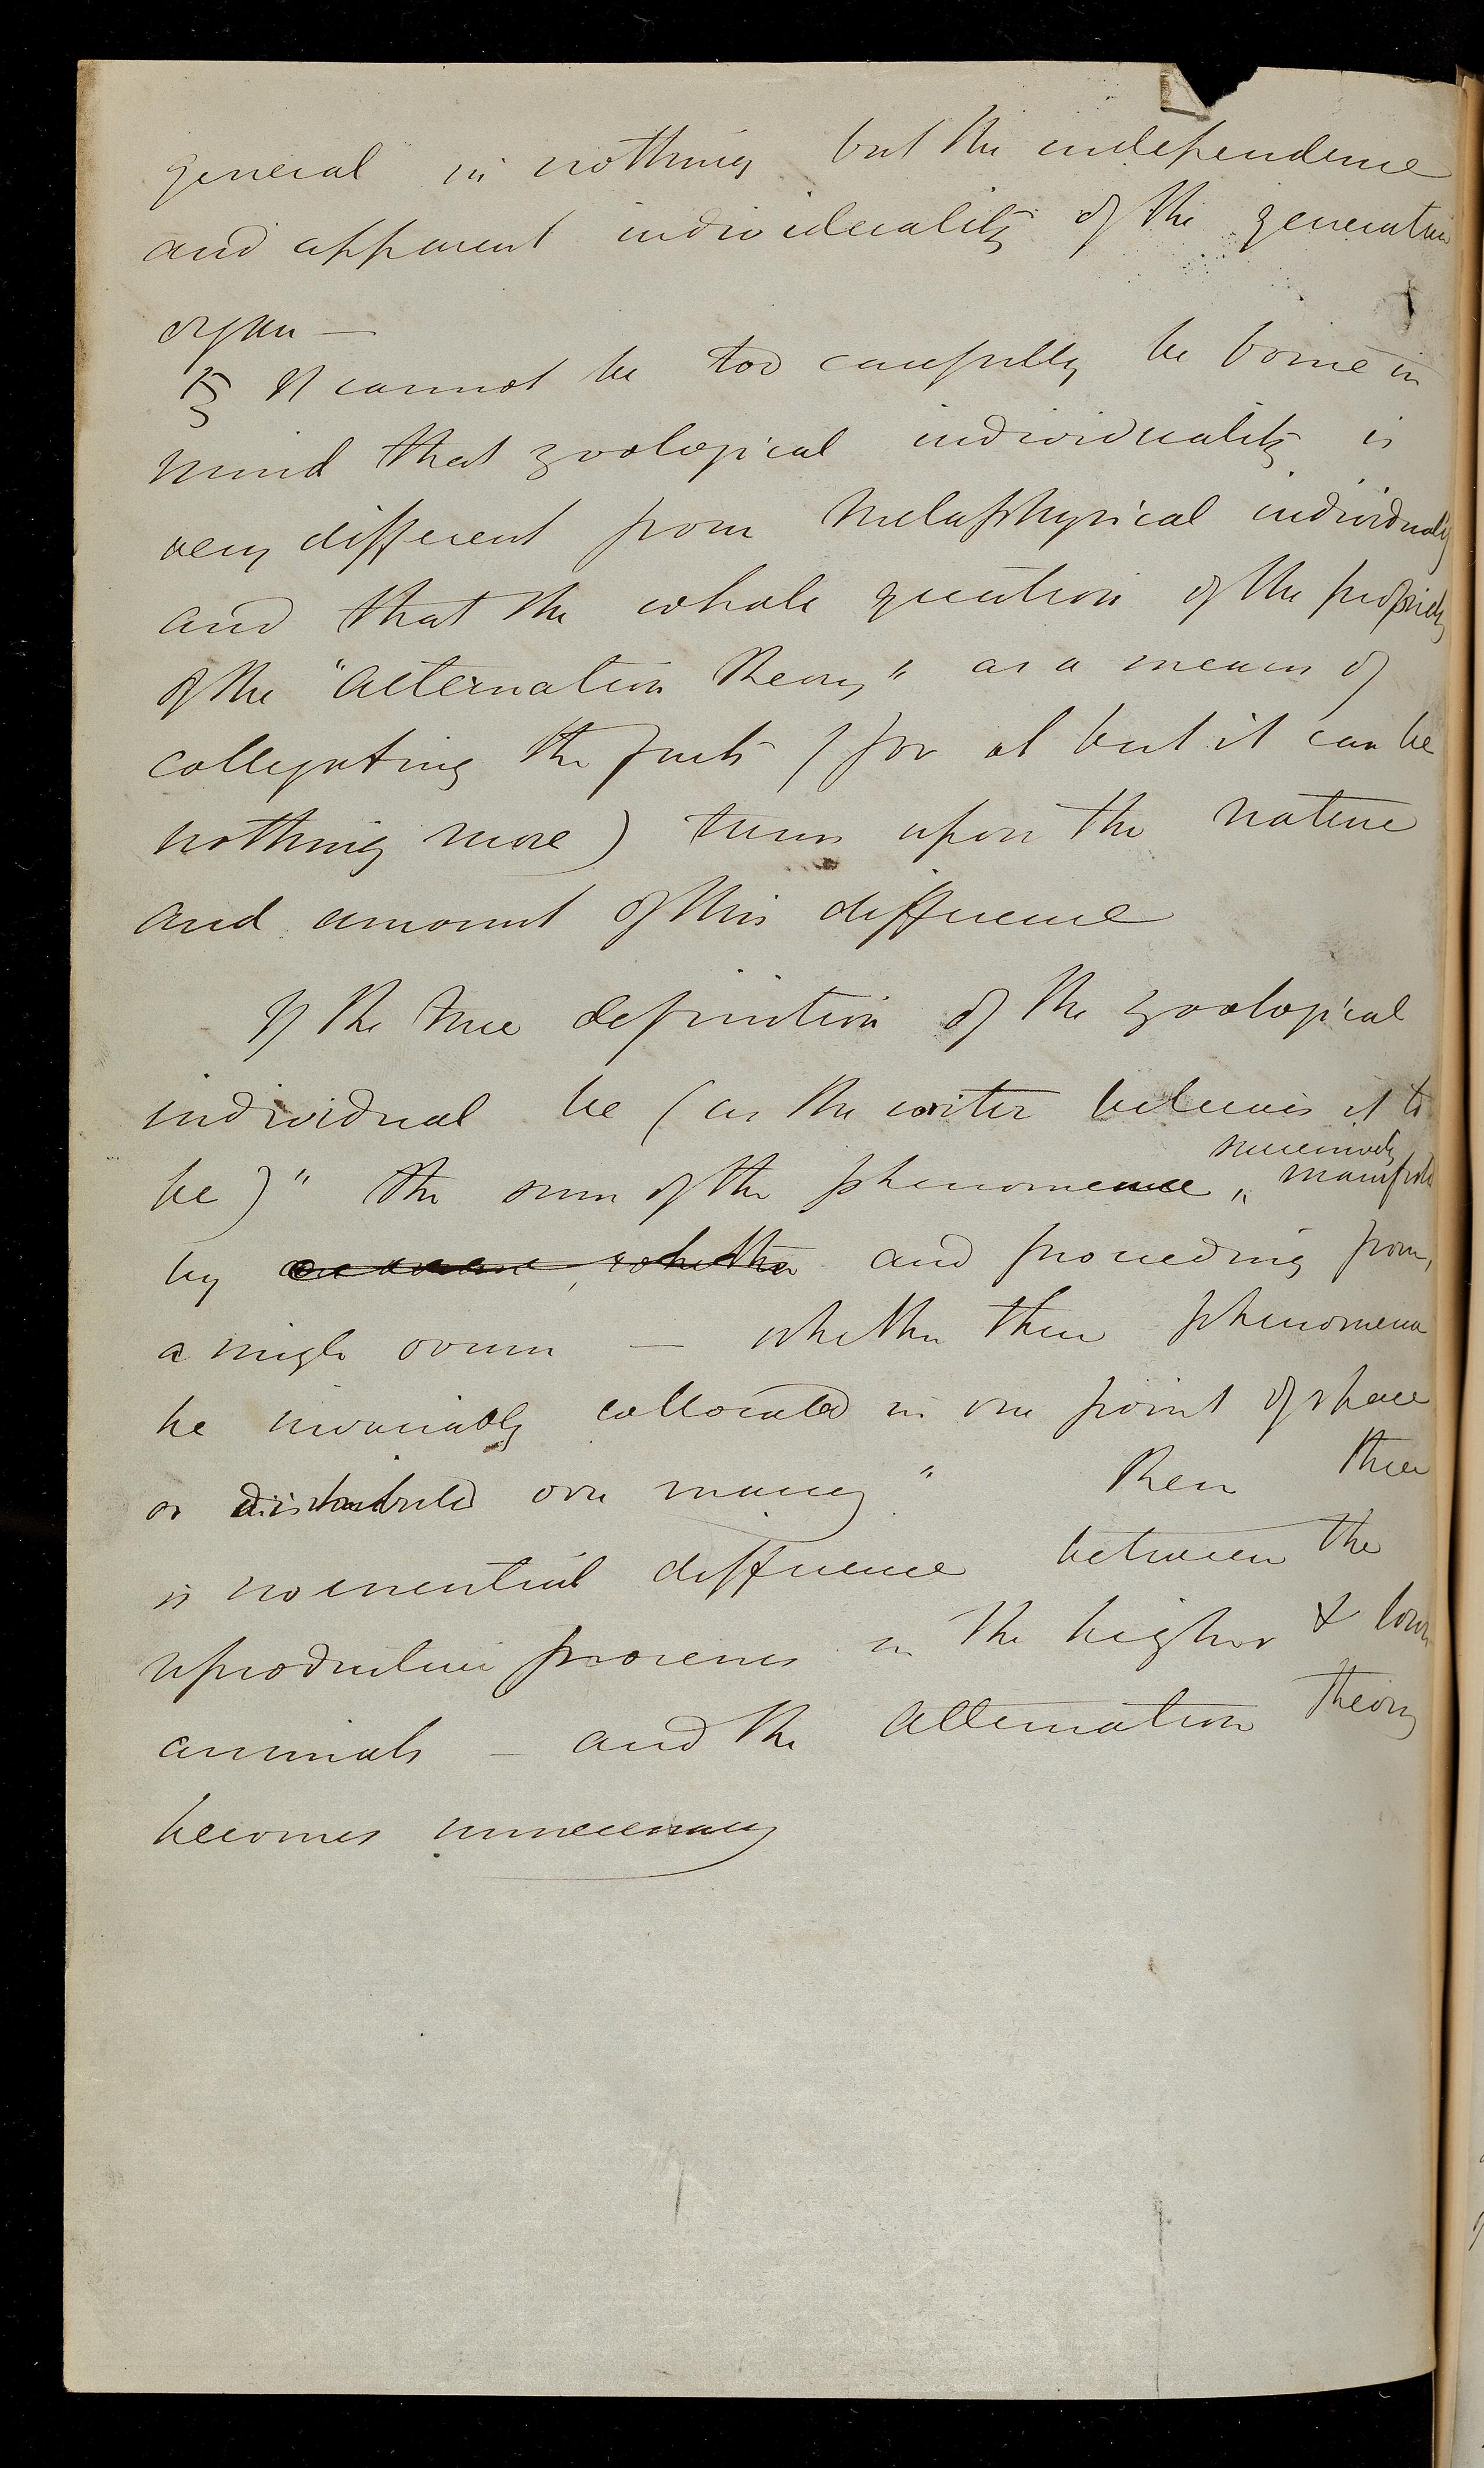 general in nothing but the independence
and apparent individuality of the generative
organ —
It cannot be too carefully be borne in
mind that zoological individuality is
very different from Metaphysical individuality
and that the whole question of the propriety
of the "Alternation Theory" as a means of
colligating the facts (for at best it can be
nothing more) turns upon the nature
and amount of this difference
If the true definition of the zoological
individual be (as the writer believes it to
successively
be) " the sum of the phenomena manifested
by whether and proceeding from,
a single ovum — whether these phenomena
be invariably collocated in one point of space
or distributed over many" Then there
is no essential difference between the
reproductive processes in the higher & lower
animals — and the Alternation theory
becomes unnecessary